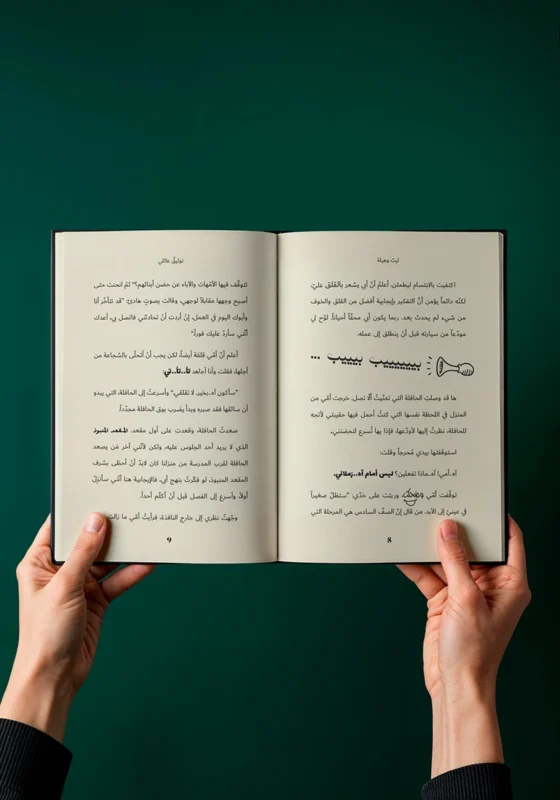 ليث وهيلة
اكتفيت بالابتسام ليطمئن. أعلمُ أنّ أبي يشعر بالقلق عليّ،
لكنّه دائماً يؤمن أنّ التفكير بإيجابية أفضل من القلق والخوف
من شيء لم يحدث بعد. ربما يكون أبي محقّاً أحياناً. لوّح لي
مودّعاً من سيارته قبل أنْ ينطلق إلى عمله.
بييييييب بيييب ...
ها قد وصلتِ الحافلة التي تمنّيتُ ألّا تصل. خرجت أمّي من
المنزل في اللحظة نفسها التي كنتُ أحمل فيها حقيبتي لأتجه
للحافلة، نظرتُ إليها لأودّعها، فإذا بها تُسرع لتحضنني.
استوقفتها بيدي مُحرجاً وقلت:
آه..أمي! آه..ماذا تفعلين؟ ليس أمام آه..زملائي.
توقّفت أمّي وربتت على خدّي: "ستظلّ صغيراً
في عينيّ إلى الأبد. من قال إنّ الصفّ السادس هي المرحلة التي
8
توليقٌ عائلي
تتوقّف فيها الأمّهات والآباء عن حضن أبنائهم؟" ثمّ انحنت حتى
أصبح وجهها مقابلاً لوجهي، وقالت بصوتٍ هادئ: "قد نتأخّر أنا
وأبوك اليوم في العمل، إنْ أردت أنْ تحادثني فاتصل بي، أعدك
أنّني سأردّ عليك فوراً."
أعلم أنّ أمّي قلقة أيضاً، لكن يجب أنْ أتحلّى بالشجاعة من
أجلها، فقلت وأنا أجاهد تأ..تأ..تي:
"سأكون آه..بخير. لا تقلقي." وأسرعتُ إلى الحافلة، التي يبدو
أن سائقها فقد صبره وبدأ يضرب بوق الحافلة مجدّداً.
صعدتُ الحافلة، وقعدت على أول مقعد. المقعد المنبوذ
الذي لا يريد أحد الجلوس عليه، ولكن لأنّني آخر مَن يصعد
الحافلة لقرب المدرسة من منزلنا كان لابدّ أنْ أحظى بشرف
المقعد المنبوذ. لو فكّرتُ بنهج أبي، فالإيجابية هنا أنّني سأنزلُ
أولاً، وأسرع إلى الفصل قبل أنْ أكلّم أحداً.
وجّهتُ نظري إلى خارج النافذة، فرأيتُ أمّي ما زالت
9